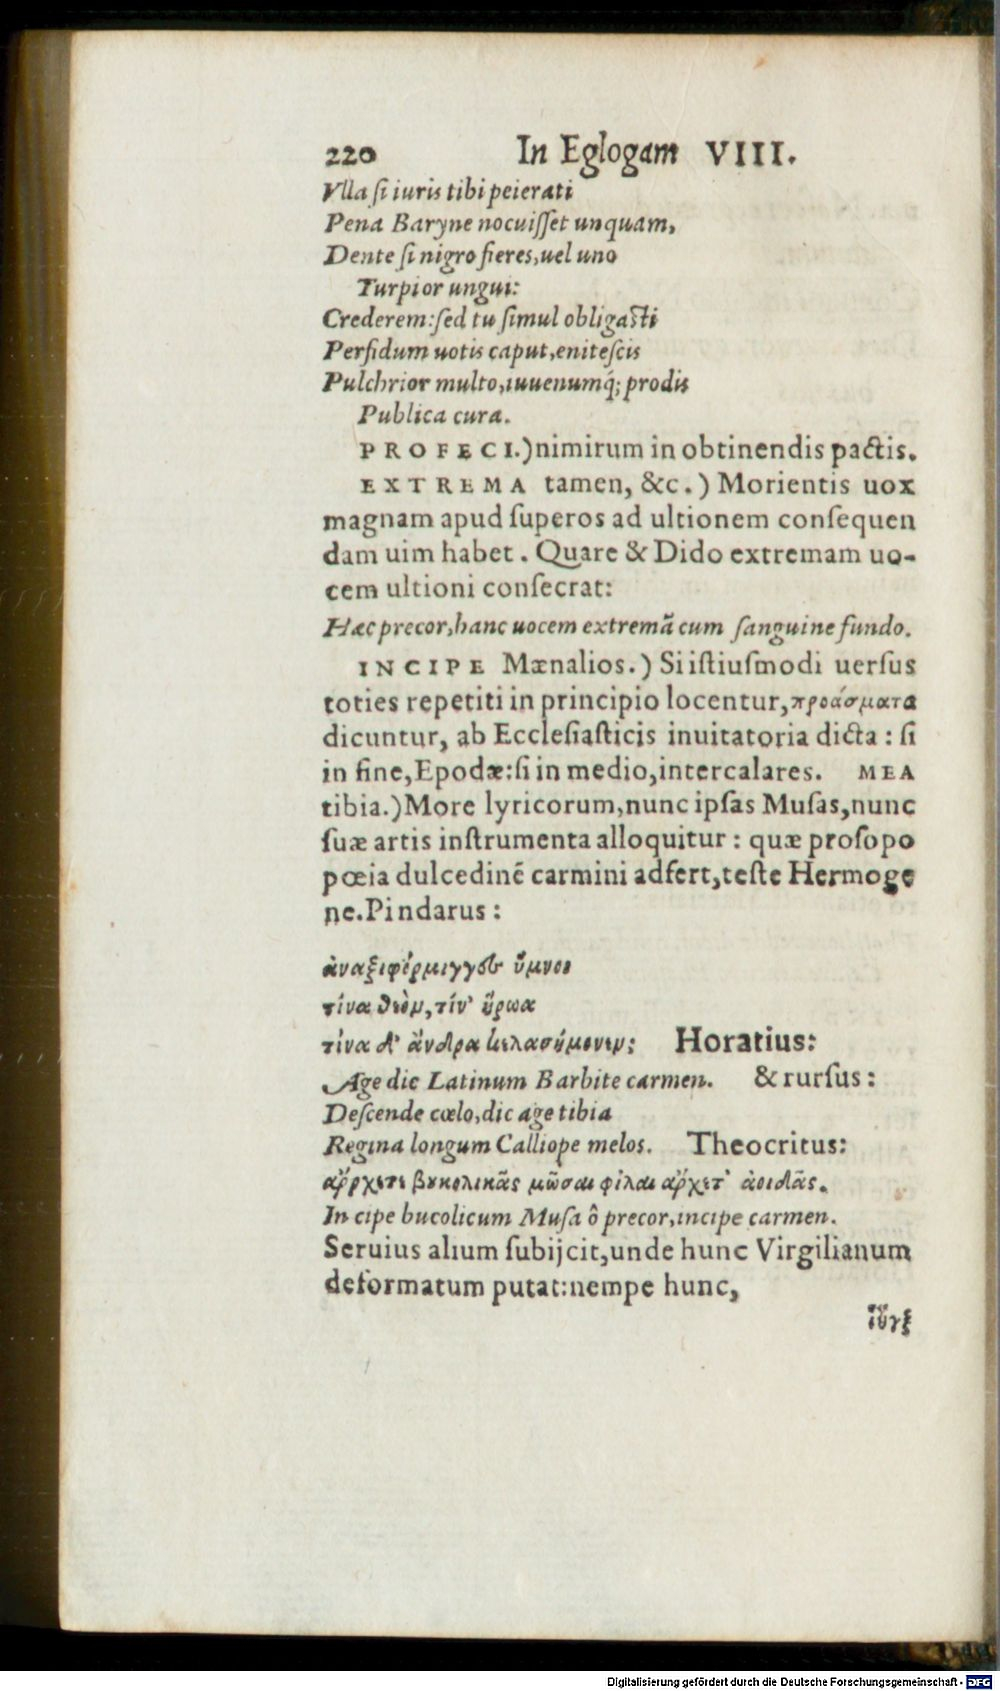 220 In Eglogam VIII.
Vlla ſi iuris tibi peierati
Pena Baryne nocuiſſet unquam,
Dente ſi nigro fieres, uel uno
Turpior ungui:
Crederem: ſed tu ſimul obligaſti
Perfidum uotis caput, eniteſcis
Pulchrior multo, iuuenumq́; prodis
Publica cura.
PROFECI.) nimirum in obtinendis pactis.
EXTREMA tamen, &c.) Morientis uox
magnam apud ſuperos ad ultionem conſequen
dam uim habet. Quare & Dido extremam uo-
cem ultioni conſecrat:
Hæc precor, hanc uocem extremã cum ſanguine fundo.
INCIPE Mænalios.) Si iſtiuſmodi uerſus
toties repetiti in principio locentur, προάσματα
dicuntur, ab Eccleſiaſticis inuitatoria dicta: ſi
in fine, Epodæ: ſi in medio, intercalares. MEA
tibia.) More lyricorum, nunc ipſas Muſas, nunc
ſuæ artis inſtrumenta alloquitur: quæ proſopo
pœia dulcedinẽ carmini adfert, teſte Hermoge
ne. Pindarus:
ἀναξιφόρμιγγες ὕμνοι
τίνα θεὸν, τίν' ἥρωα
τίνα δ' ἄνδρα κελαδήσομεν; Horatius:
Age dic Latinum Barbite carmen. & rurſus:
Deſcende cœlo, dic age tibia
Regina longum Calliope melos. Theocritus:
ἄρχετε βουκολικᾶς μῶσαι φίλαι ἄρχετ' ἀοιδᾶς.
Incipe bucolicum Muſa ô precor, incipe carmen.
Seruius alium ſubijcit, unde hunc Virgilianum
deformatum putat: nempe hunc,
ἴϋγξ
Digitalisierung gefördert durch die Deutsche Forschungsgemeinschaft - DFG